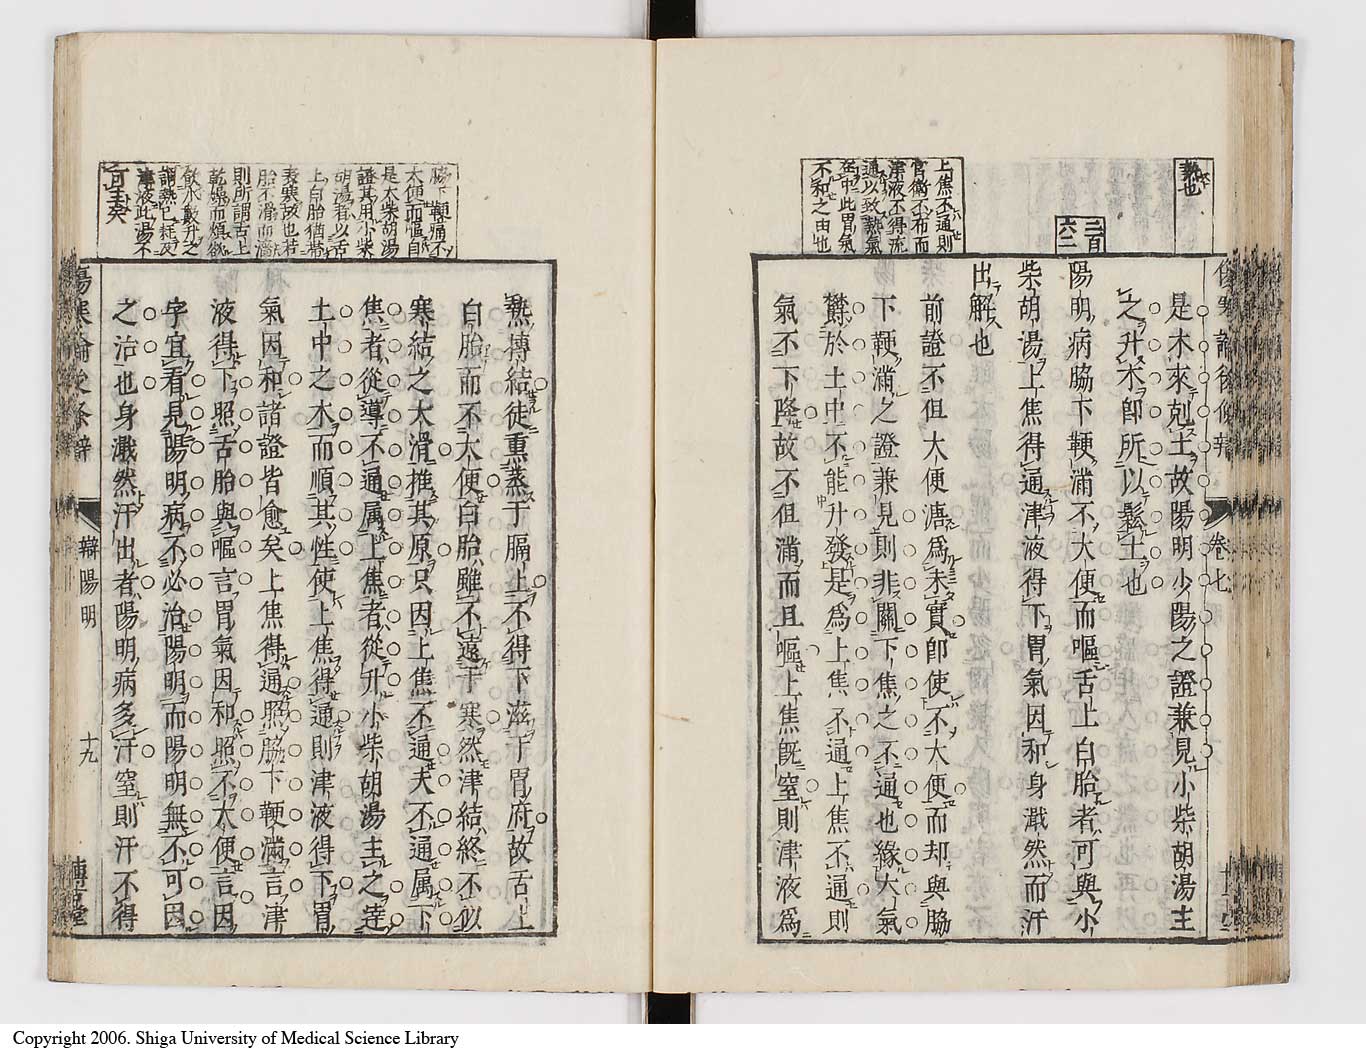 熱也
二百
六二
上焦不通則
官衛不布而
津液不得流
通以致熱氣
不和之由也
是木來剋土故陽明少陽之證兼見小柴胡湯主
之升木卽所以鬆土也
陽明病脇下鞕滿不大便而嘔舌上白胎者可與小
柴胡湯上焦得通津液得下胃氣因和身濈然而汗
出解也
前證不但大便溏爲未實卽使不大便而却與脇
下鞕滿之證兼見則非關下焦之不通也緣大氣
鬱於土中不能升發是爲上焦不通上焦不通則
氣不下降故不但滿而且嘔上焦旣窒則津液爲
卷七
脇下鞕痛不
大便而嘔自
是大柴胡湯
證其用小柴
胡湯者以舌
上白胎猶帶
表寒故也若
胎不滑而濇
則所謂舌上
乾燥而煩欲
飲水數升之
謂熱已耗及
津液此湯不
可主矣
熱摶結徒熏蒸于膈上不得下滋于胃府故舌上
白胎而不大便白胎雖不遠于寒然津結終不似
寒結之大滑推其原只因上焦不通夫不通属下
焦者從導不通属上焦者從升小柴胡湯主之達
土中之木而順其性使上焦得通則津液得下胃
氣因和諸證皆愈矣上焦得通照脇下鞕滿言津
液得下照舌胎與嘔言胃氣因和照不大便言因
字宜看見陽明病不必治陽明而陽明無不可因
之治也身濈然汗出者陽明病多汗窒則汗不得
傷寒論後条辯
辯陽明
十九
博古堂
Copyright 2006. Shiga University of Medical Science Library